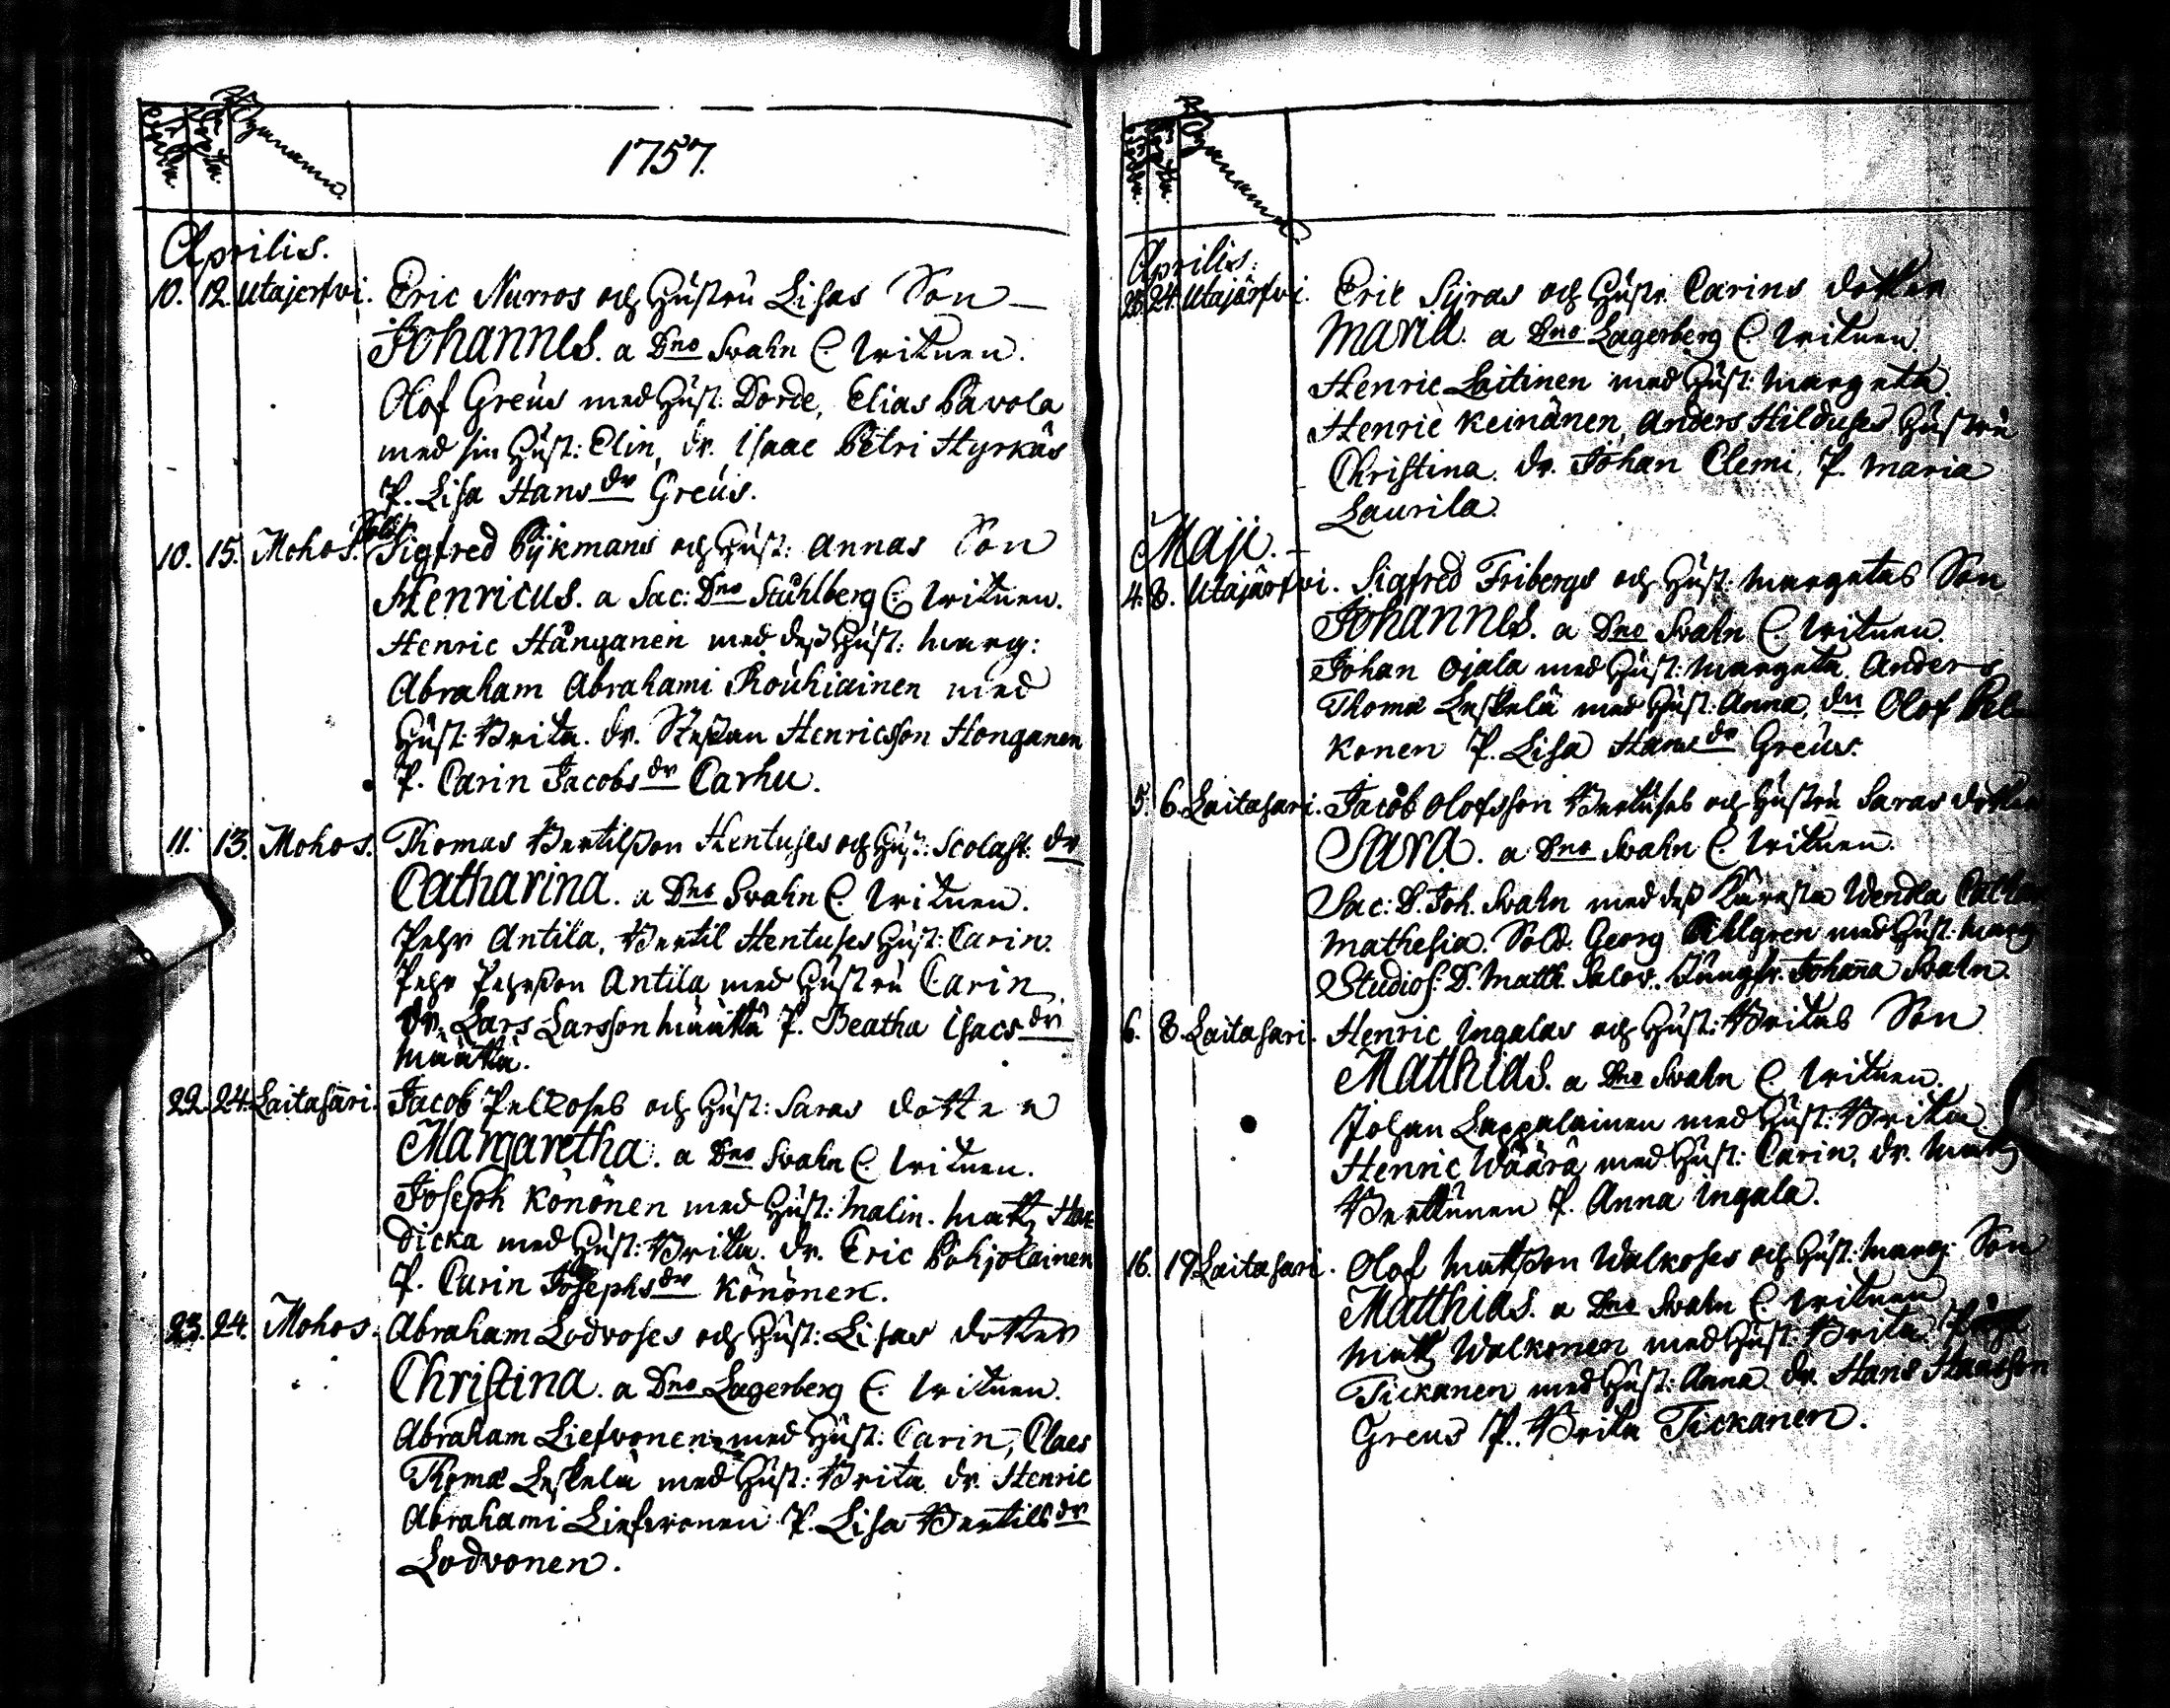 Födda. Christna. Byanamn.
1757.
Aprilis.
10. 12. Utajerfvi. Eric Nurros och Hustru Lisas Son
Johannes. a Dno Svahn C. Vittnen.
Olof Greus med Hust: Dorde, Elias Pavola
med sin Hust: Elin, dr. Isaac Petri Hyrkäs
P. Lisa Hans dr Greus.
10. 15. Mohos. Sold. Sigfred Bÿkmans och Hust: Annas Son
Henricus. a Sac: Dno Ståhlberg C. Vittnen.
Henric Hånganen med dess Hust: Marg:
Abraham Abrahami Rouhiainen med
Hust: Brita. dr. Staffan Henricsson Honganen
P. Carin Jacobs dr Carhu.
11. 13. Mohos. Thomas Bertilsson Hentuses och Hust: Scolast: dr
Catharina. a Dno Svahn C. Vittnen.
Pehr Antila, Bertil Hentuses Hust: Carin.
Pehr Pehrsson Antila med Hustru Carin,
dr. Lars Larsson Määttä P. Beatha Isacs dr
Määttä.
22. 24. Laitasari. Jacob Pelkoses och Hust: Saras dotter
Margaretha. a Dno Svahn C. Vittnen.
Joseph Könönen med Hust: Malin. Matts Har-
dicka med Hust: Brita. dr. Eric Pohjolainen
P. Carin Josephs dr Könönen.
23. 24. Mohos. Abraham Lodvoses och Hust: Lisas dotter
Christina. a Dno Lagerberg C. Vittnen.
Abraham Liefvonen med Hust: Carin, Claes
Thomæ Leskelä med Hust: Brita dr. Henric
Abrahami Liefvonen P. Lisa Bertils dr
Lodvonen.
Födda. Christna. Byanamn.
Aprilis.
23. 24. Utajärfvi. Eric Sÿras och Hustr. Carins dotter
Maria. a Dno Lagerberg C. Vittnen.
Henric Laitinen med Hust: Margeta.
Henric Keinänen, Anders Hilduses Hustru
Christina. dr. Johan Clemi, P. Maria
Laurila.
Maji.
4. 8. Utajärfvi. Sigfred Fribergs och Hust: Margetas Son
Johannes. a Dno Svahn C. Vittnen.
Johan Ojala med Hust: Margeta. Anders
Thomæ Leskelä med Hust: Anna, dr Olof Pel-
konen P. Lisa Hans dr Greus.
5. 6. Laitasari. Jacob Olofsson Bertuses och Hustru Saras dotter
Sara. a Dno Svahn C. Vittnen.
Sac: D. Joh. Svahn med dess Käresta Wendla Cath
Mathesia. Sold. Georg Ahlgren med Hust: Marg
Studios: D. Matth. Salov. Jungfr. Johanna Svahn.
6. 8. Laitasari. Henric Ingalas och Hust: Britas Son
Matthias. a Dno Svahn C. Vittnen.
Johan Lappalainen med Hust: Brita
Henric Väärä med Hust: Carin, dr. Matts
Berttunen P. Anna Ingala.
16. 19. Laitasari. Olof Mattsson Walkoses och Hust: Marg: Son
Matthias. a Dno Svahn C. Vittnen
Matts Walkonen med Hust: Brita
Tickanen med Hust: Anna. dr. Hans Hansson
Greus P. Brita Tickanen.